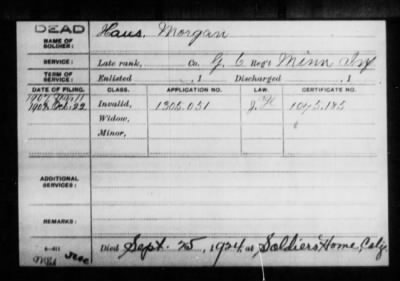 DEAD
NAME OF SOLDIER: Haus, Morgan
SERVICE: Late rank, Co. G, 6 Reg't Minn Inf
TERM OF SERVICE: Enlisted , 1 Discharged , 1
DATE OF FILING. CLASS. APPLICATION NO. LAW. CERTIFICATE NO.
1903
22 Invalid, 1305.051 1095.185
Widow,
Minor,
ADDITIONAL SERVICES:
REMARKS:
Died Sept. 25, 1924, at Soldiers Home,